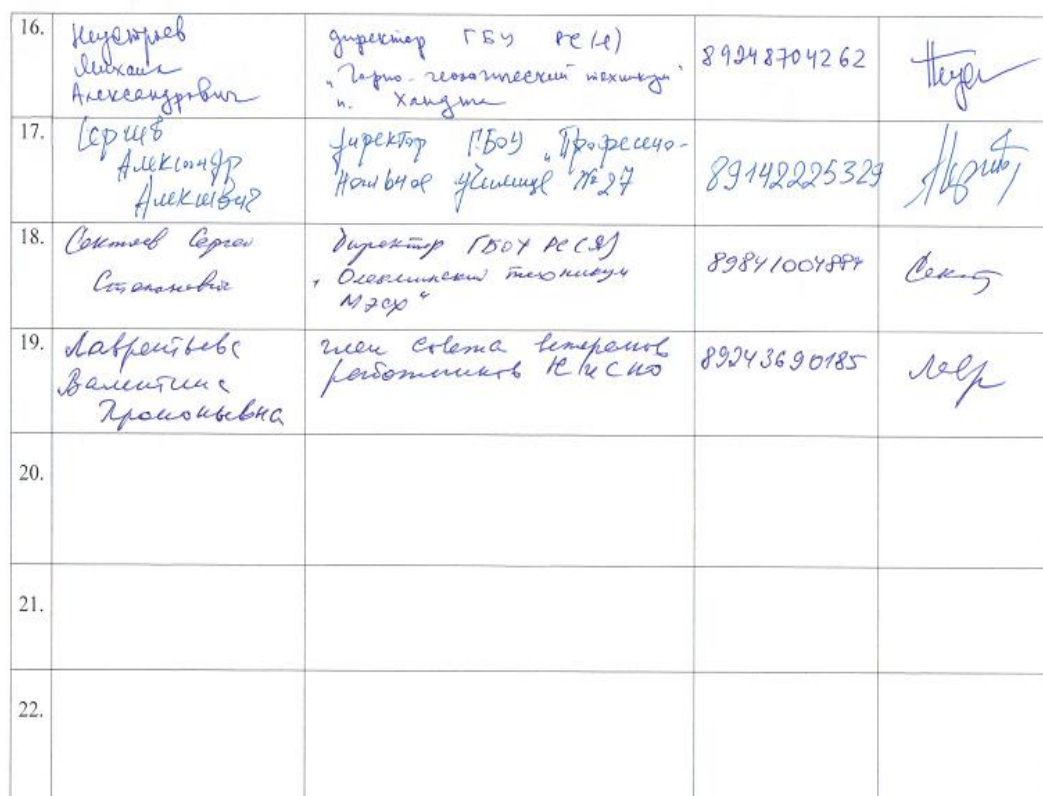 16.
Неустроев
Михаил
Александрович
директор ГБУ РС(Я)
"Горно-геологический техникум"
п. Хандыга
89248704262
17.
Сергеев
Александр
Алексеевич
Директор ГБОУ "Профессио-
нальное училище №27
89142225329
18.
Сектяев Сергей
Степанович
Директор ГБОУ РС(Я)
"Олекминский техникум
МЭСХ"
19.
Лаврентьева
Валентина
Прокопьевна
член совета ветеранов
работников НиСПО
89243690185
Лавр
20.
21.
22.